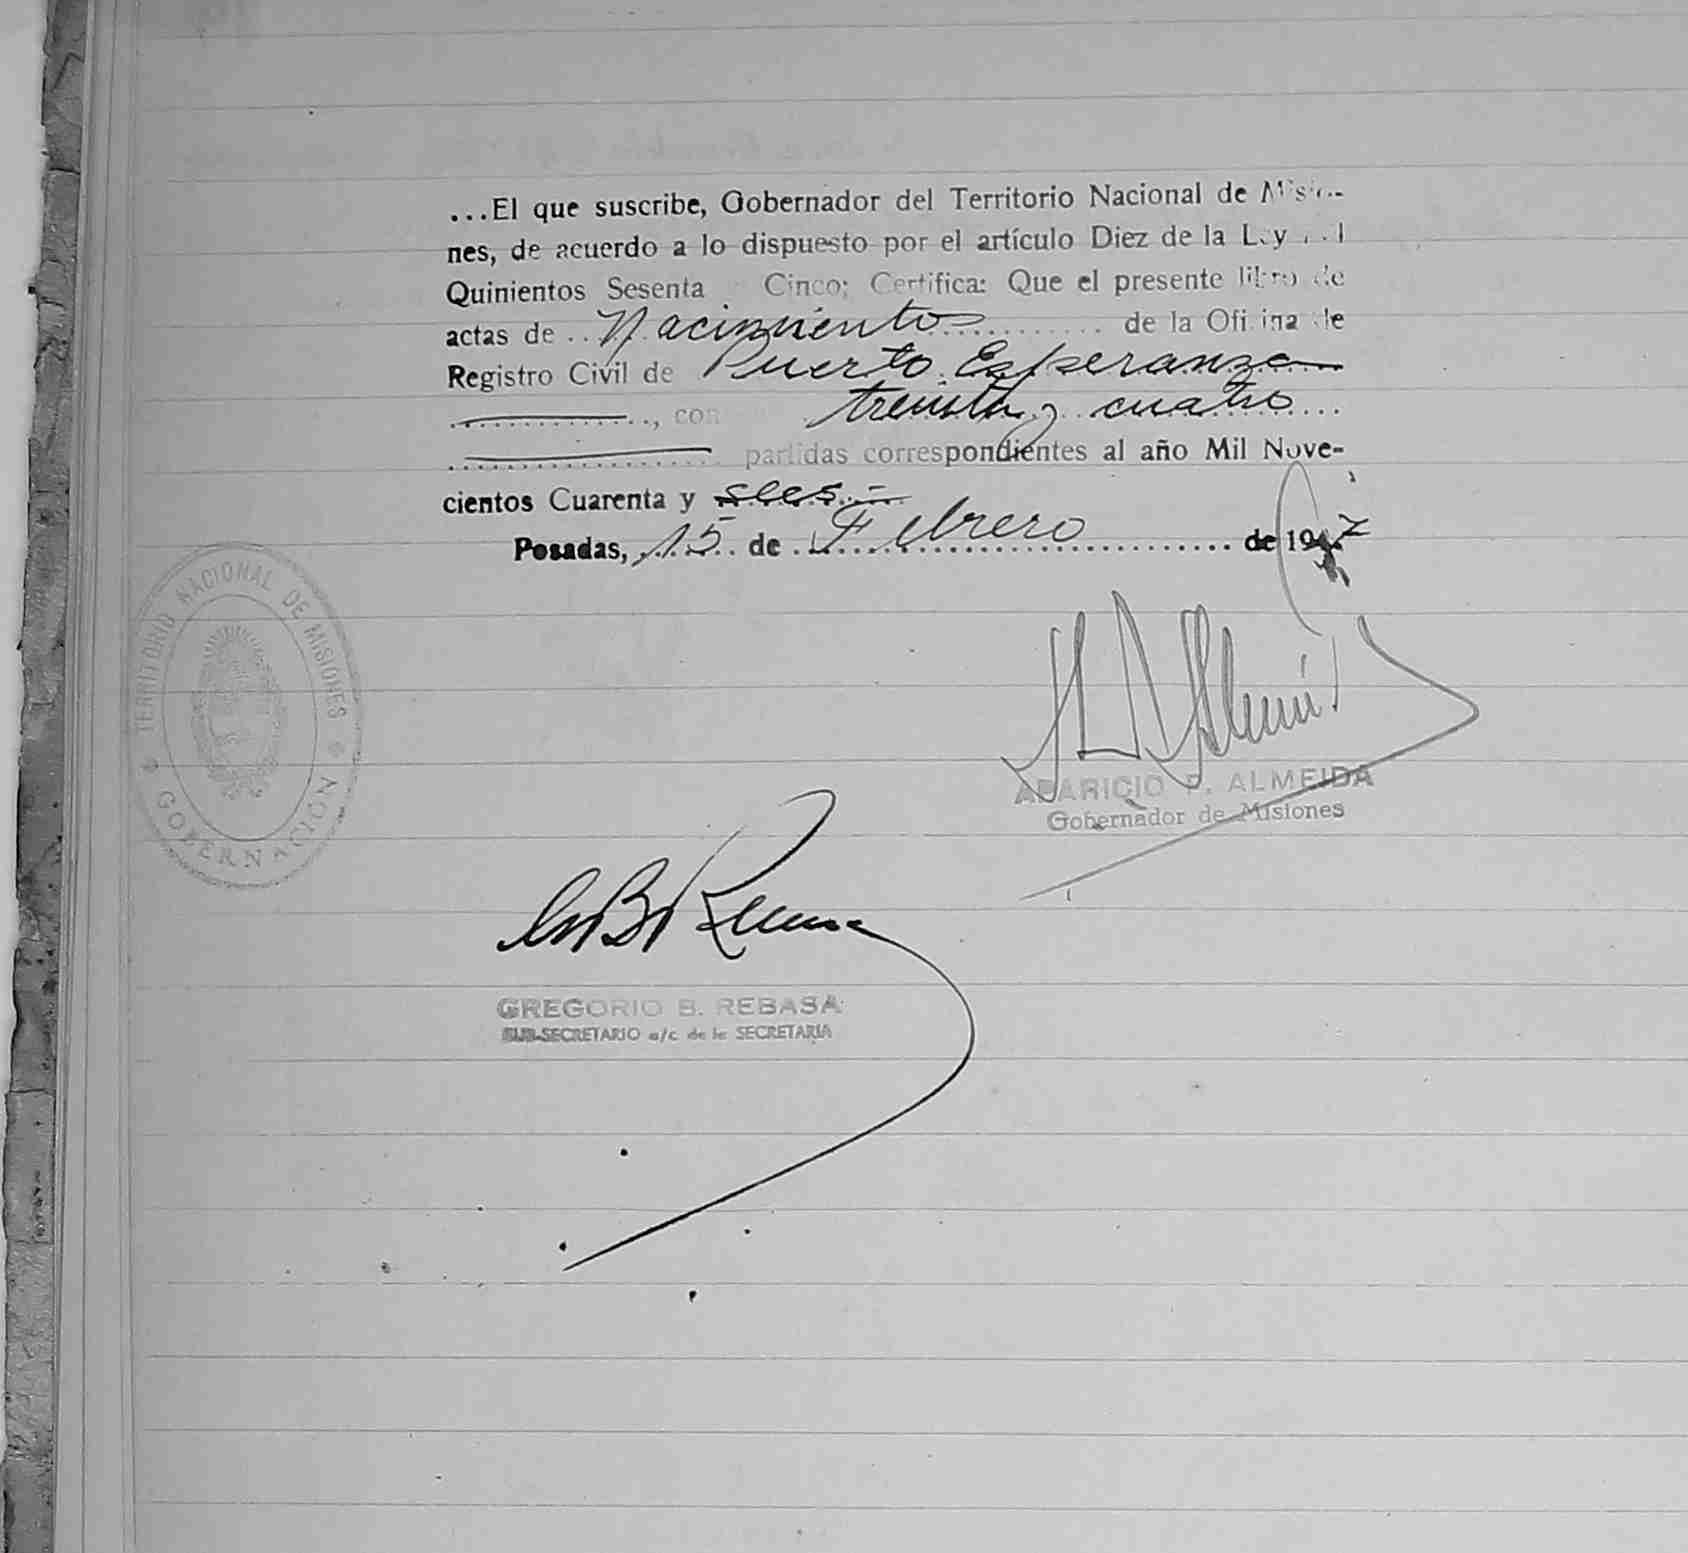 ...El que suscribe, Gobernador del Territorio Nacional de Misio-
nes, de acuerdo a lo dispuesto por el artículo Diez de la Ley
Quinientos Sesenta Cinco; Certifica: Que el presente libro de
actas de .. Nacimientos .......... de la Oficina de
Registro Civil de Puerto Esperanza
..............., con treinta y cuatro ....
.................... partidas correspondientes al año Mil Nove-
cientos Cuarenta y seis.-
Posadas, 15 de Febrero de 1947
TERRITORIO NACIONAL DE MISIONES
GOBERNACION
APARICIO ALMEIDA
Gobernador de Misiones
GREGORIO B. REBASA
SUB-SECRETARIO a/c de la SECRETARIA